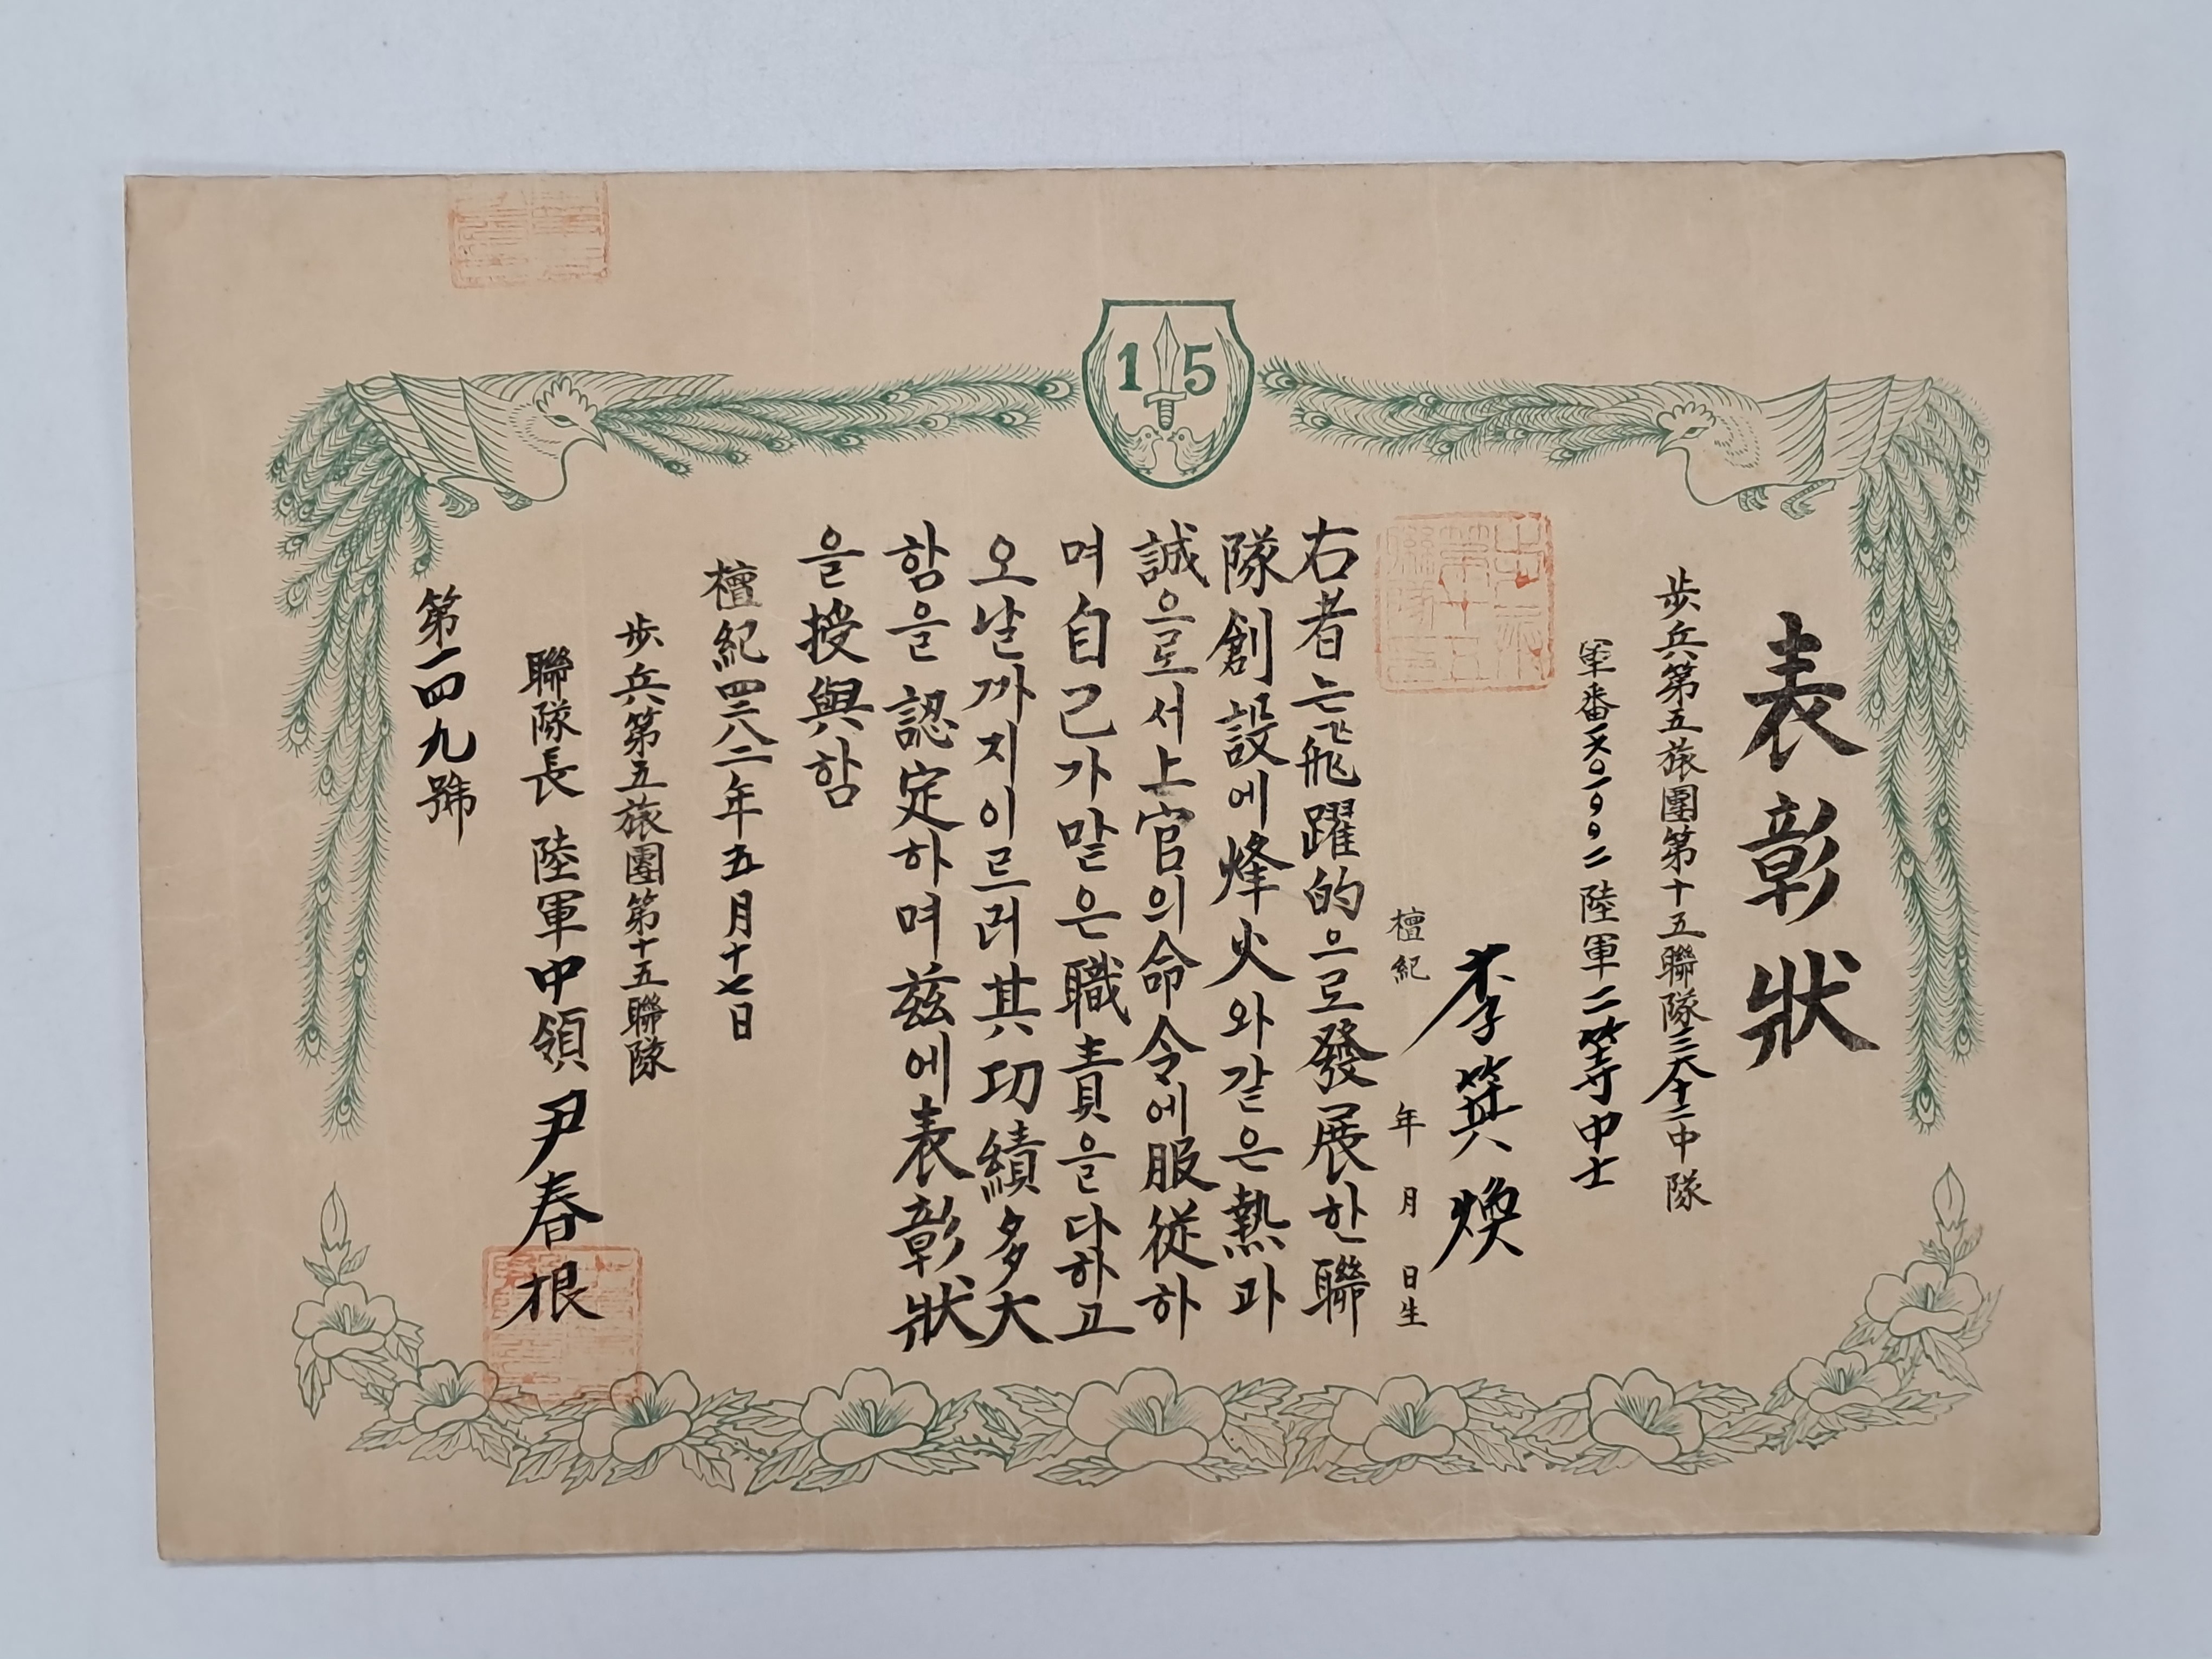 15
表彰狀
歩兵第五旅團第十五聯隊 中隊
軍番 陸軍二等中士
李箕煥
檀紀 年 月 日生
右者는 飛躍的으로 發展한 聯
隊創設에 烽火와 같은 熱과
誠으로서 上官의 命令에 服從하
며 自己가 맡은 職責을 다하고
오날까지 이르러 其功績多大
함을 認定하며 玆에 表彰狀
을 授與함
檀紀四二八二年五月十七日
歩兵第五旅團第十五聯隊
聯隊長 陸軍中領 尹春根
第一四九號